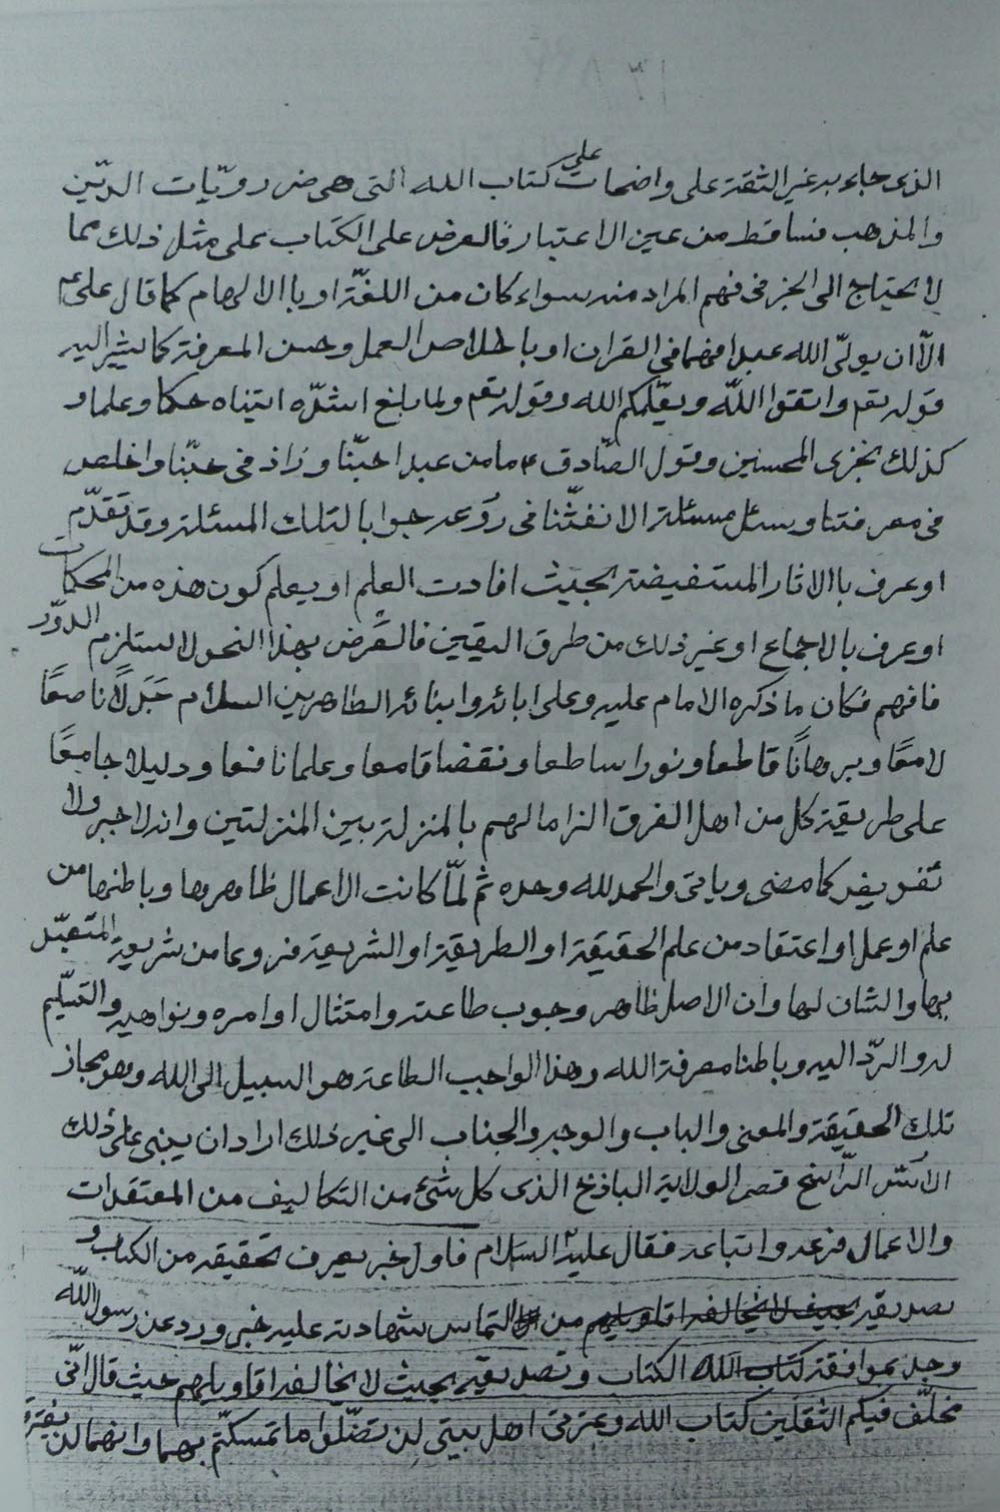 الذى جاء به غير الثقة على واضحات على كتاب الله التى هى ضروريّات الدّين
والمذهب فساقط من عين الاعتبار فالعرض على الكتاب على مثل ذلك مما
لا يحتاج الى الخبر فى فهم المراد منه سواء كان من اللغّة او باالالهام كما قال علىّ ع
الاّ ان يولىّ الله عبدا فهما فى القران او باخلاص العمل وحسن المعرفة كما يشير اليه
قوله تعم واتقوا اللّه ويعلّمكم الله وقوله تعم ولما بلغ اشدّه اتيناه حكما وعلما و
كذلك نجزى المحسنين وقول الصّادق ع ما من عبد احبّنا وزاد فى حبّنا واخلص
فى معرفتنا وسئل مسئلة الا نفثنا فى روعه جوابا لتلك المسئلة وقد تقدّم
او عرف باالاثار المستفيضة بحيث افادت العلم او يعلم كون هذه من المحكمات
او عرف بالاجماع او غير ذلك من طرق اليقين فالعرض بهذا النحو لا يستلزم الدوّر
فافهم فكان ما ذكره الامام عليه وعلى ابائه وابنائه الطاهرين السلام جَبَلاً ناصعًا
لامعًا وبرهانًا قاطعا ونورا ساطعا ونقضا قامعا وعلما نافعا ودليلا جامعًا
على طريقة كل من اهل الفرق الزاما لهم بالمنزلة بين المنزلتين وانه لا جبر ولا
تفويض كما مضى وياتى والحمد لله وحده ثم لمّا كانت الاعمال ظاهرها وباطنها من
علم او عمل او اعتقاد من علم الحقيقة او الطريقة او الشريعة فروعا من شريعة المتعبّد
بها والشان لها وان الاصل ظاهر وجوب طاعته وامتثال اوامره ونواهيه والتسّليم
له والردّ اليه وباطنا معرفة الله وهذا الواجب الطاعة هو السبيل الى الله وهو مجاز
تلك الحقيقة والمعنى والباب والوجه والجناب الى غير ذلك اراد ان يبنى على ذلك
الاسّ الرّاسخ قصر الولاية الباذخ الذى كل شئ من التكاليف من المعتقدات
والاعمال فرعه واتباعه فقال عليه السلام فاول خبر يعرف تحقيقه من الكتاب و
تصديقه بحيث لا يخالفه اقاويلهم من التماس شهادته عليه خبر ورد عن رسول اللّه
وجد بموافقة كتاب الله الكتاب وتصديقه بحيث لا يخالفه اقاويلهم حيث قال انّى
مخلّف فيكم الثقلين كتاب الله وعترتى اهل بيتى لن تضّلوا ما تمسكتّم بهما وانهما لن يفترقا